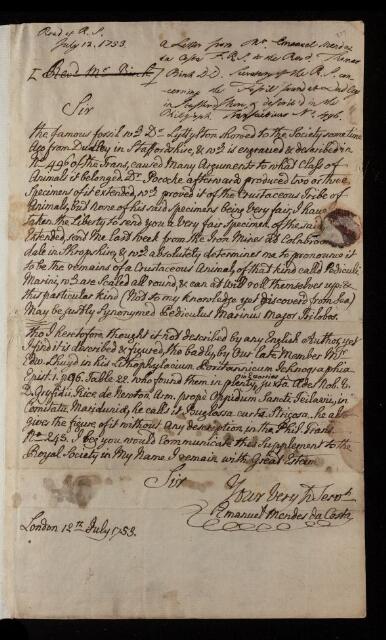 Read of R.S.
July 12. 1753.
[Revd Mr Birch]
a Letter from Mr Emanuel Mendez
da Costa F.R.S. to the Revd Thomas
Birch D.D. Secretary of the R.S. con-
cerning the Fossil found at Dudley
in Staffordshire, & described in the
Philosoph. Transactions No. 496.
Sir
the famous fossil wch Dr Lyttylton showed to the Society some time
ago from Dudley in Staffordshire, & wch is engraved & described in
No 496 of the Trans, caused Many Arguments to what Class of
Animals it belonged. Dr Pocoke afterward produced two or three
Specimens of it extended, wch proved it of the Crustaceous Tribe of
Animals, but none of his said Specimens being very fair, I have
taken the Liberty to send you a very fair Specimen of the said
Extended, sent me last Week from the Iron Mines at Colnbrook
dale in Shropshire & wch absolutely determine me to pronounce it
to be the remains of a Crustaceous Animal, of that kind called Pediculi
Marini, wch are Scaled all round & can at Will roll themselves up &
this particular kind (Not to my knowledge yet discovered from Sea)
May be justly synonymed Pediculus Marinus Major Trilobos.
tho I heretofore thought it not described by any English Author, yet
I find it is described & figured, tho badly, by Our late Member Mr
Edw. Lhuyd in his Lithophylacium Britannicum Ichnographia
Epist. 1. p. 96. Table 22. who found them in plenty, juxta Ædes Nob. &
D. Grifidii Rice de Newton Arm. prope Oppidum Sancti Teilavi, in
Comitatu Maridunio, he calls it Buglossa curta Strigosa, he also
give the figure of it without any description in the Phil. Trans.
No 243. I beg you would Communicate this Supplement to the
Royal Society in My Name I remain with Great Esteem
Sir
Your Very h Servt
Emanuel Mendes da Costa
London 12th July 1753.